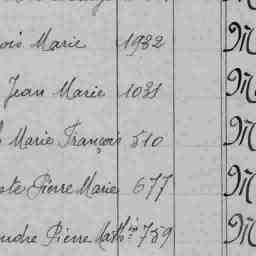 ois Marie 1932 M
Jean Marie 1031 M
Marie François 510 M
ste Pierre Marie 677 M
andre Pierre Math 759 M